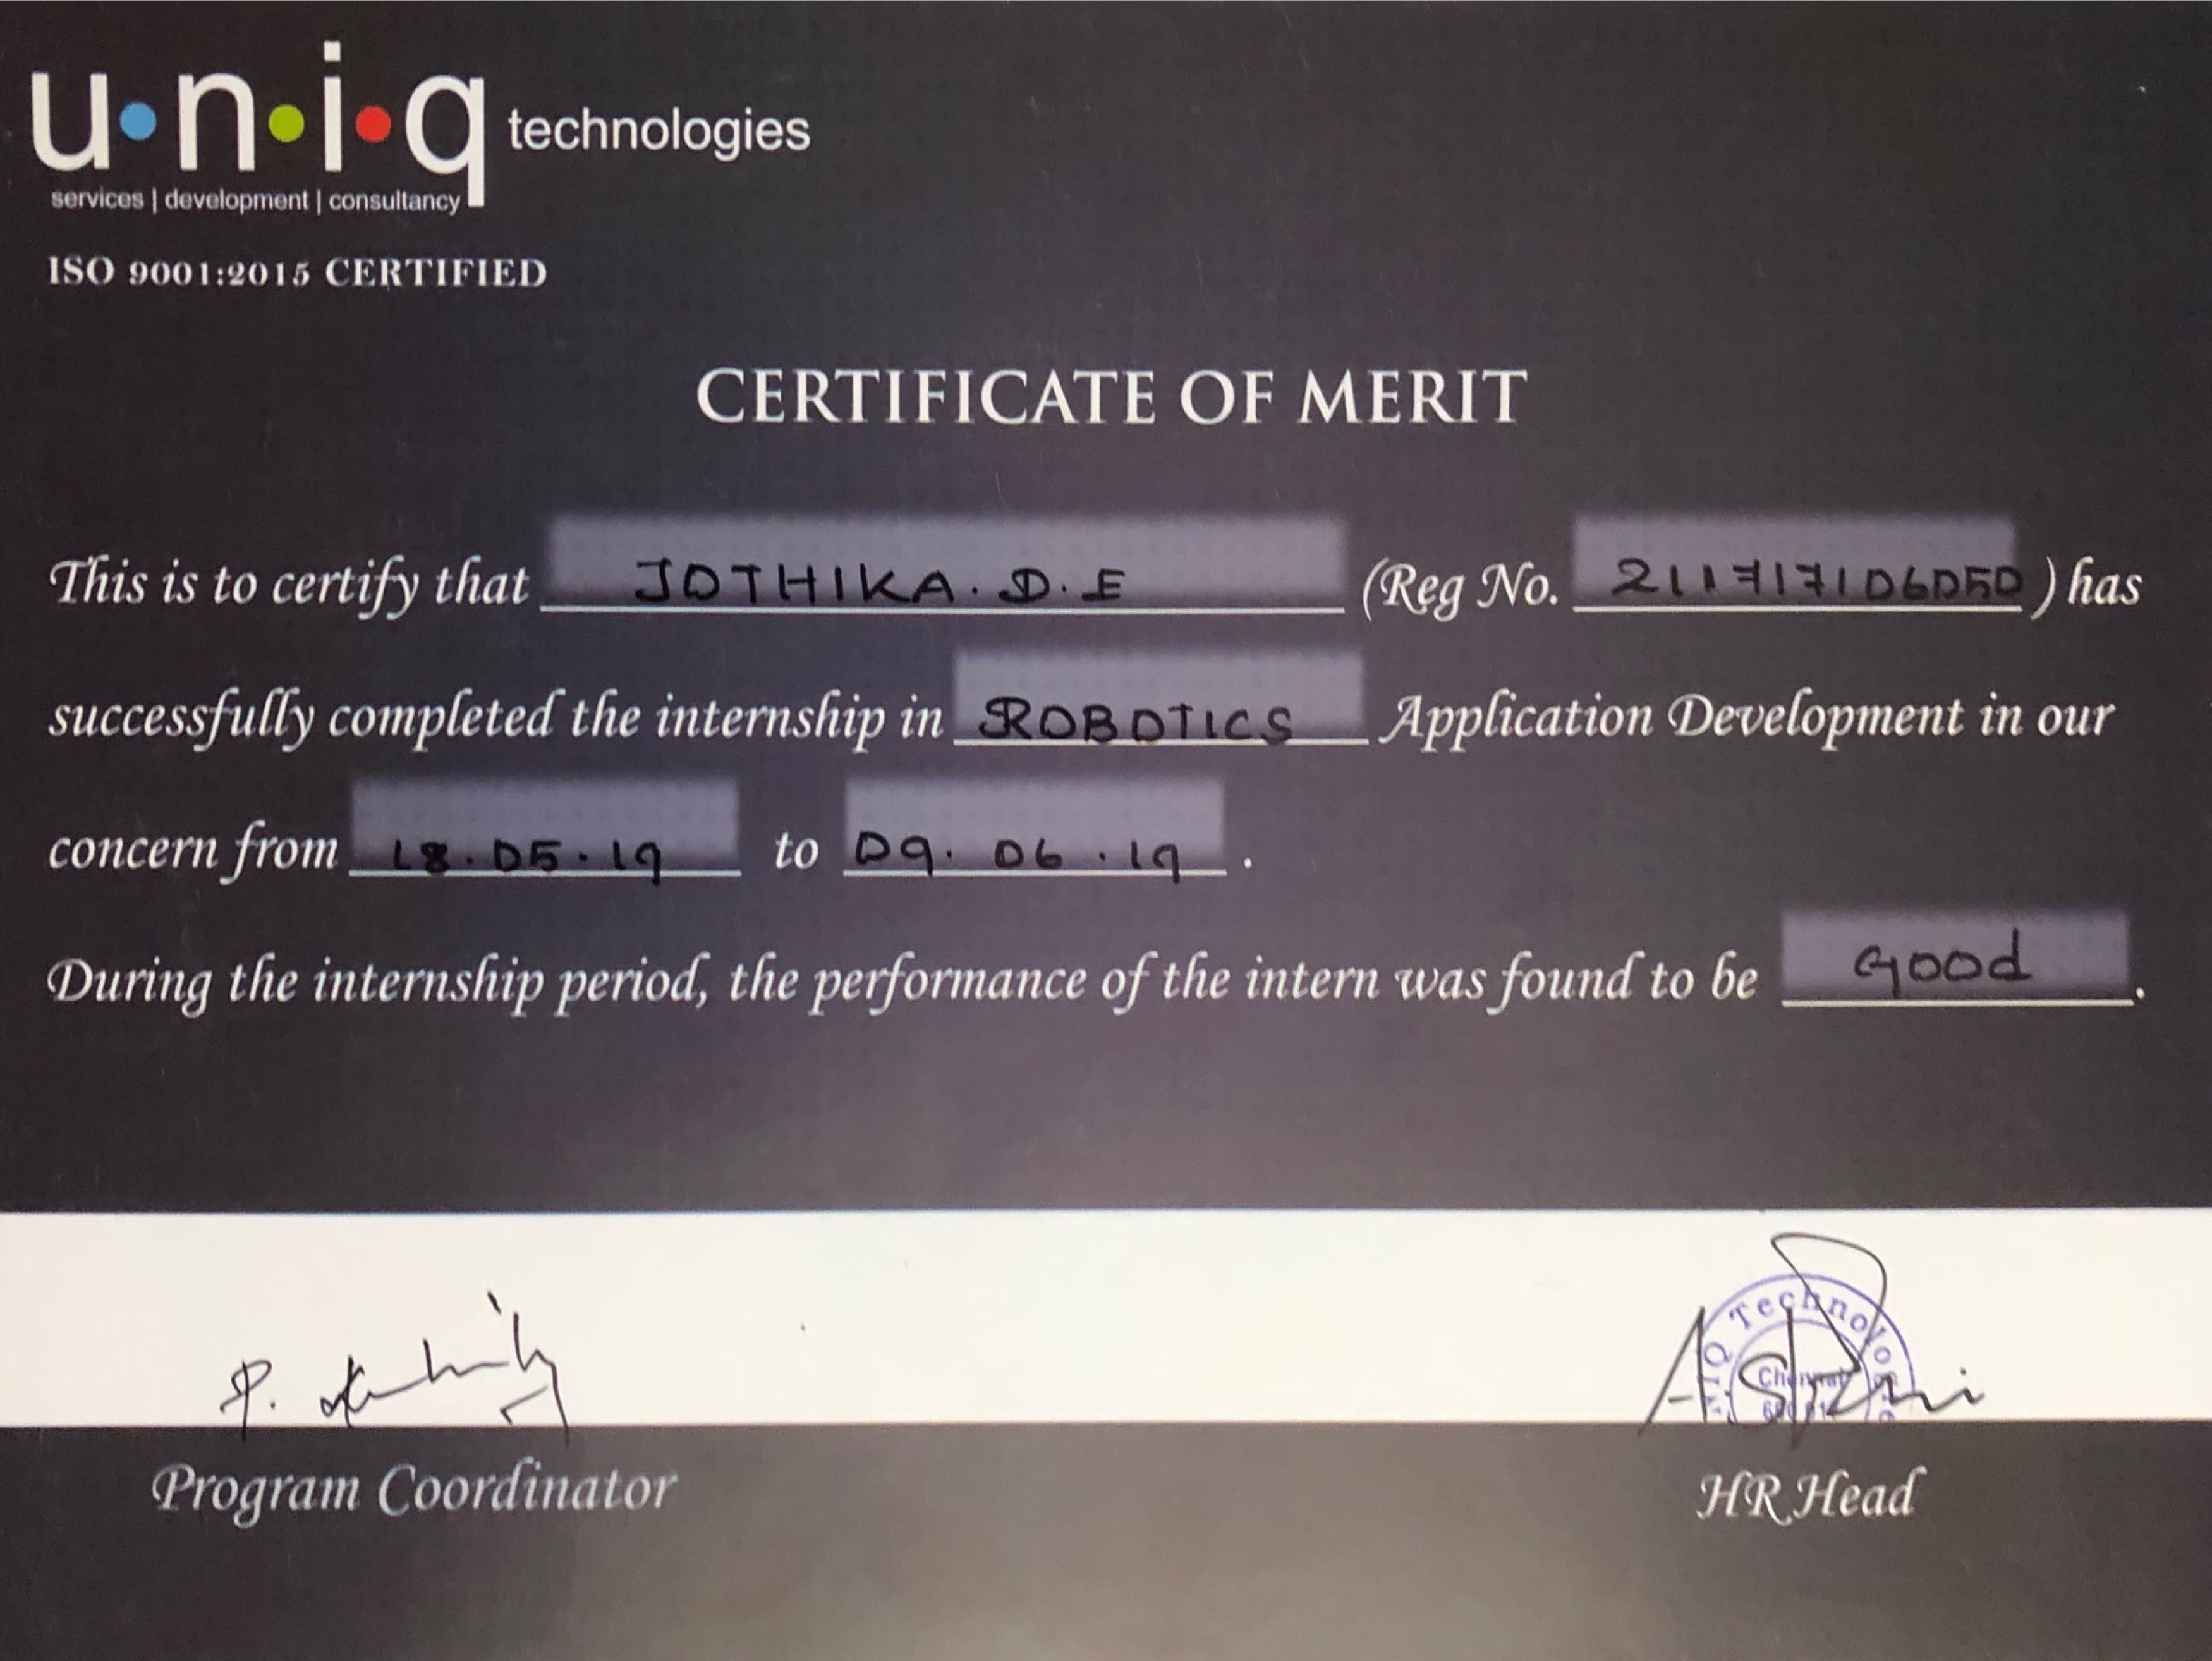 u·n·i·q technologies
services | development | consultancy
ISO 9001:2015 CERTIFIED
CERTIFICATE OF MERIT
This is to certify that JOTHIKA. D. E (Reg No. 211717106050) has
successfully completed the internship in ROBOTICS Application Development in our
concern from 18.05.19 to 09.06.19.
During the internship period, the performance of the intern was found to be Good.
Technologies
Chennai
Program Coordinator
HR Head